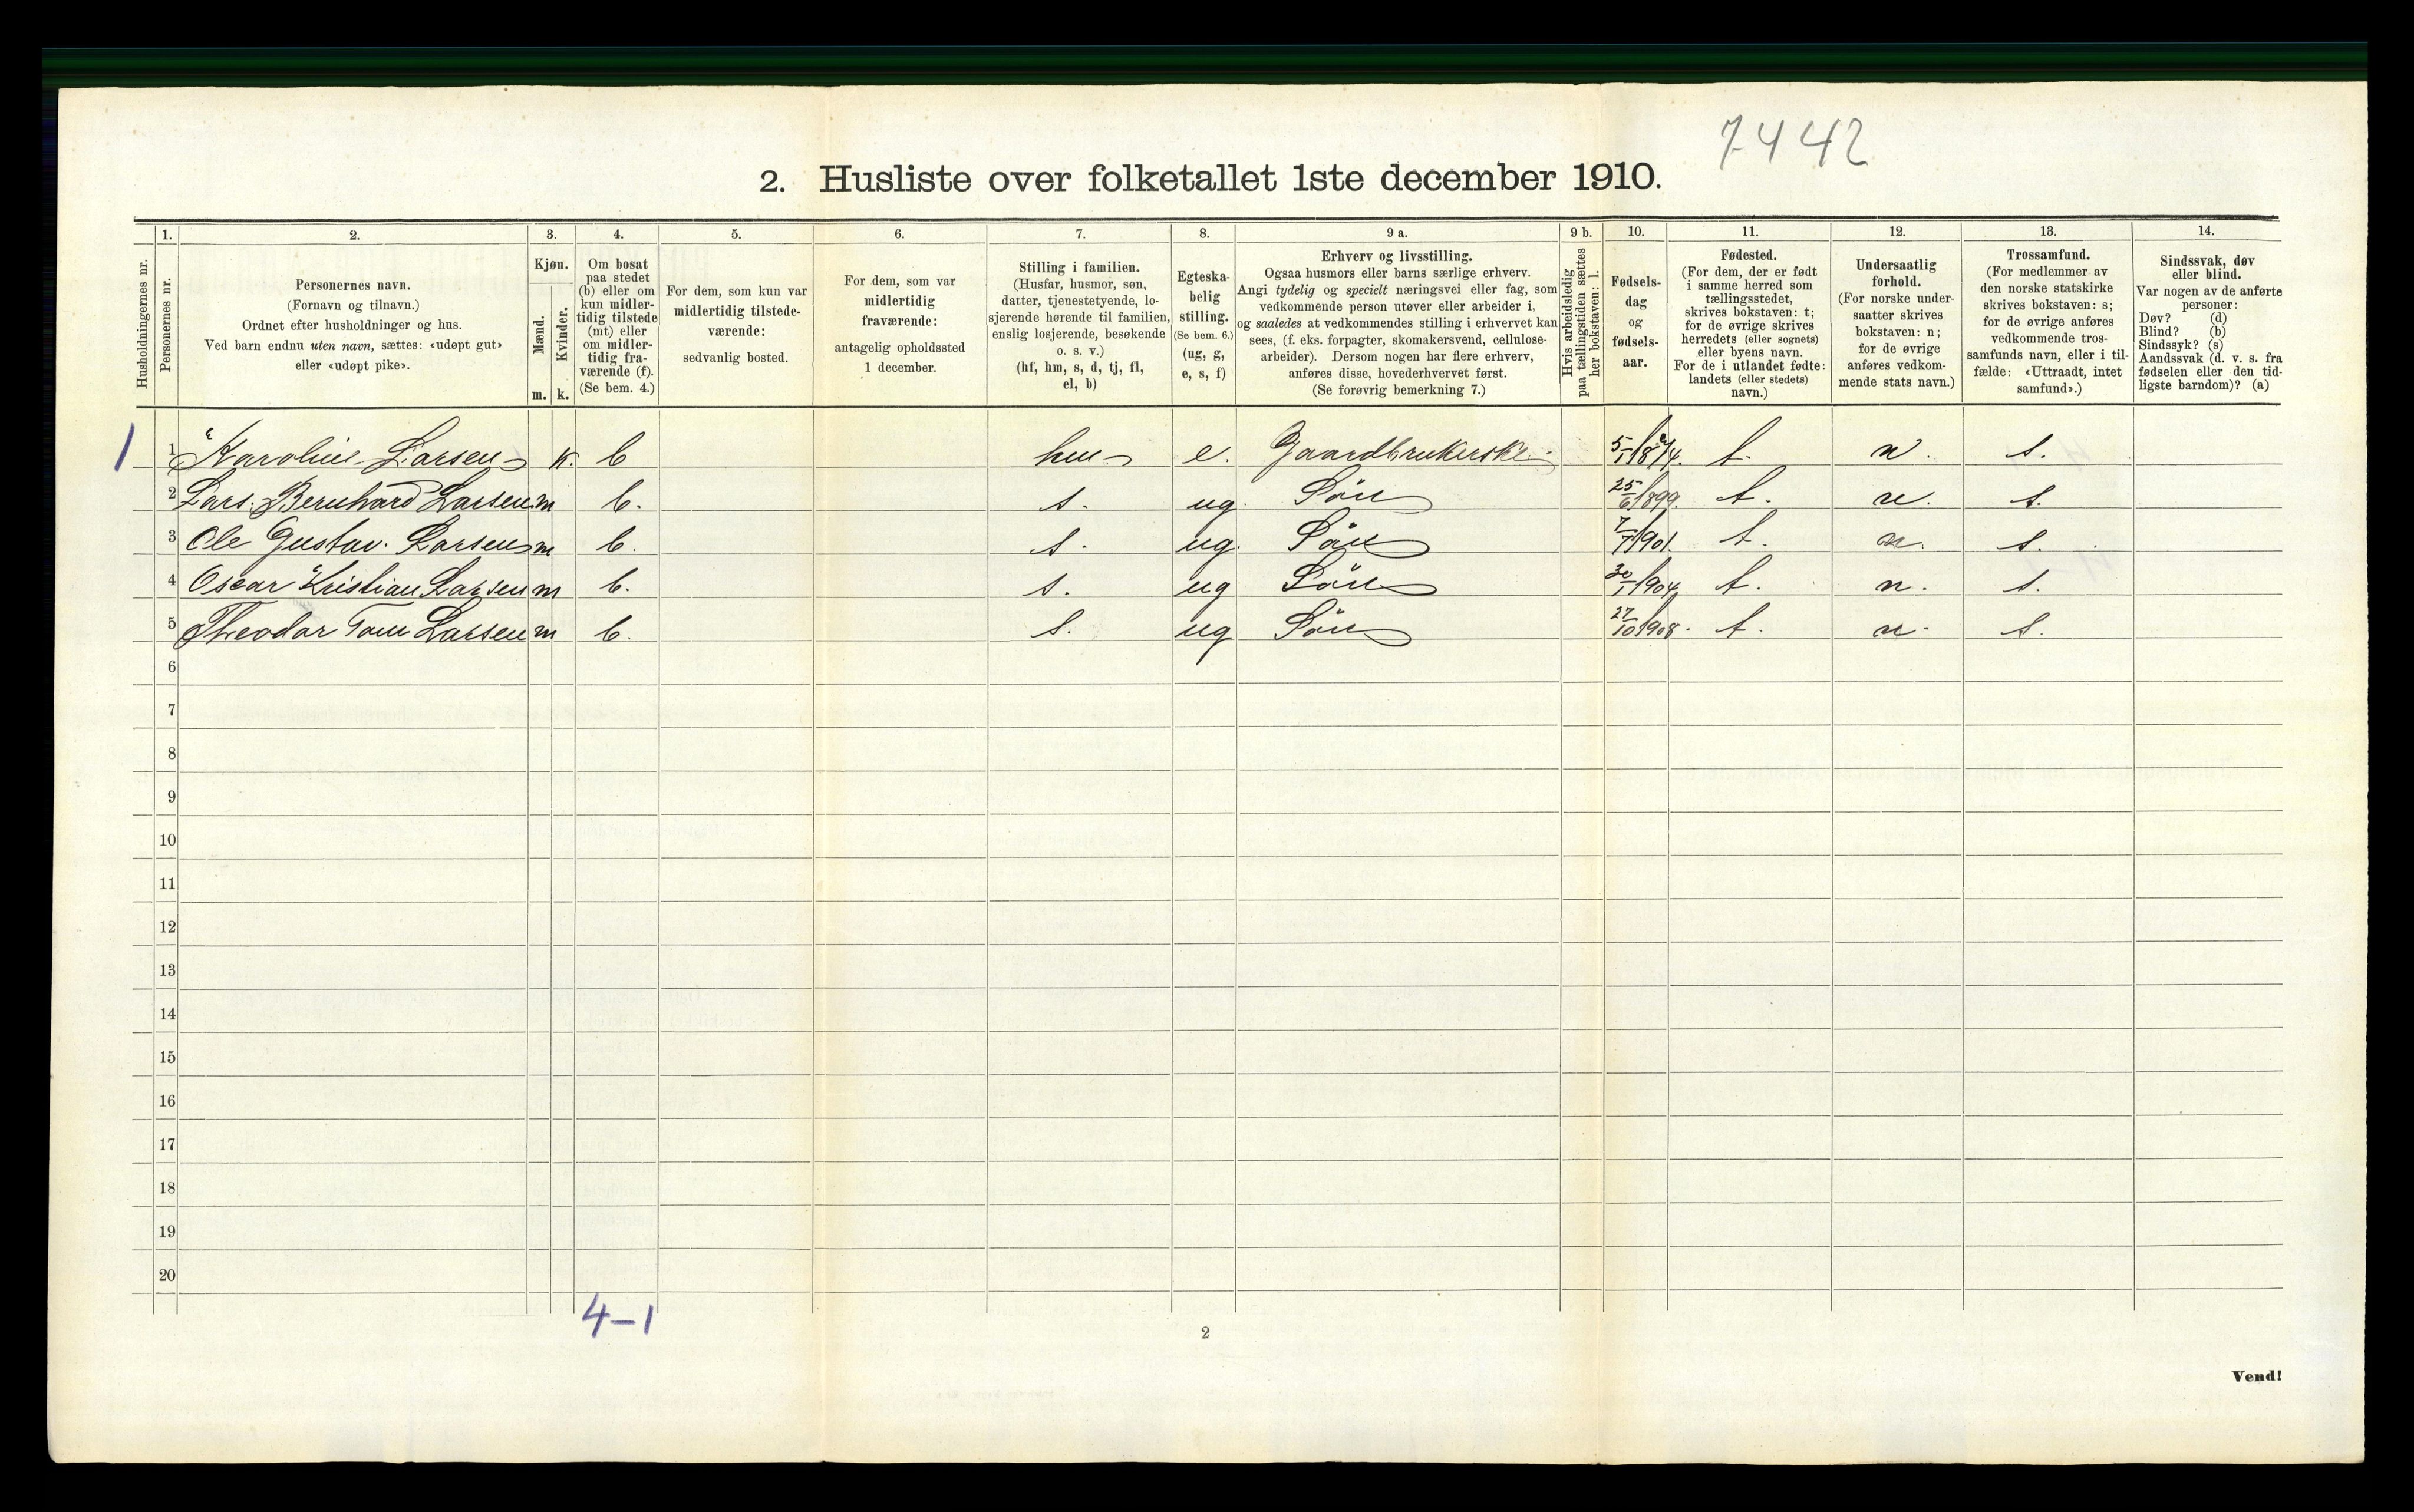 7442
2. Husliste over folketallet 1ste december 1910.
Husholdningernes nr.
1.
Personernes nr.
2.
Personernes navn.
(Fornavn og tilnavn.)
Ordnet efter husholdninger og hus.
Ved barn endnu uten navn, sættes: «udøpt gut»
eller «udøpt pike».
3.
Kjøn.
Mænd.
Kvinder.
m. k.
4.
Om bosat
paa stedet
(b) eller om
kun midler-
tidig tilstede
(mt) eller
om midler-
tidig fra-
værende (f).
(Se bem. 4.)
5.
For dem, som kun var
midlertidig tilstede-
værende:
sedvanlig bosted.
6.
For dem, som var
midlertidig
fraværende:
antagelig opholdssted
1 december.
7.
Stilling i familien.
(Husfar, husmor, søn,
datter, tjenestetyende, lo-
sjerende hørende til familien,
enslig losjerende, besøkende
o. s. v.)
(hf, hm, s, d, tj, fl,
el, b)
8.
Egteska-
belig
stilling.
(Se bem. 6.)
(ug, g,
e, s, f)
9 a.
Erhverv og livsstilling.
Ogsaa husmors eller barns særlige erhverv.
Angi tydelig og specielt næringsvei eller fag, som
vedkommende person utøver eller arbeider i,
og saaledes at vedkommendes stilling i erhvervet kan
sees, (f. eks. forpagter, skomakersvend, cellulose-
arbeider). Dersom nogen har flere erhverv,
anføres disse, hovederhvervet først.
(Se forøvrig bemerkning 7.)
9 b.
Hvis arbeidsledig
paa tællingstiden sættes
her bokstaven: l.
10.
Fødsels-
dag
og
fødsels-
aar.
11.
Fødested.
(For dem, der er født
i samme herred som
tællingsstedet,
skrives bokstaven: t;
for de øvrige skrives
herredets (eller sognets)
eller byens navn.
For de i utlandet fødte:
landets (eller stedets)
navn.)
12.
Undersaatlig
forhold.
(For norske under-
saatter skrives
bokstaven: n;
for de øvrige
anføres vedkom-
mende stats navn.)
13.
Trossamfund.
(For medlemmer av
den norske statskirke
skrives bokstaven: s;
for de øvrige anføres
vedkommende tros-
samfunds navn, eller i til-
fælde: «Uttraadt, intet
samfund».)
14.
Sindssvak, døv
eller blind.
Var nogen av de anførte
personer:
Døv? (d)
Blind? (b)
Sindssyk? (s)
Aandssvak (d. v. s. fra
fødselen eller den tid-
ligste barndom)? (a)
1 1 Karoline Larsen k. b hm e. Gaardbrukerske 5/1 1874. t. n. s.
2 Lars Bernhard Larsen m b. s. ug. Sön 25/6 1899. t. n. s.
3 Ole Gustav. Larsen m b. s. ug. Sön 7/7 1901. t. n. s.
4 Oscar Kristian Larsen m b. s. ug Sön 30/1 1904. t. n. s.
5 Theodor Tom Larsen m b. s. ug Sön 27/10 1908. t. n. s.
6
7
8
9
10
11
12
13
14
15
16
17
18
19
20
4-1
2
Vend!